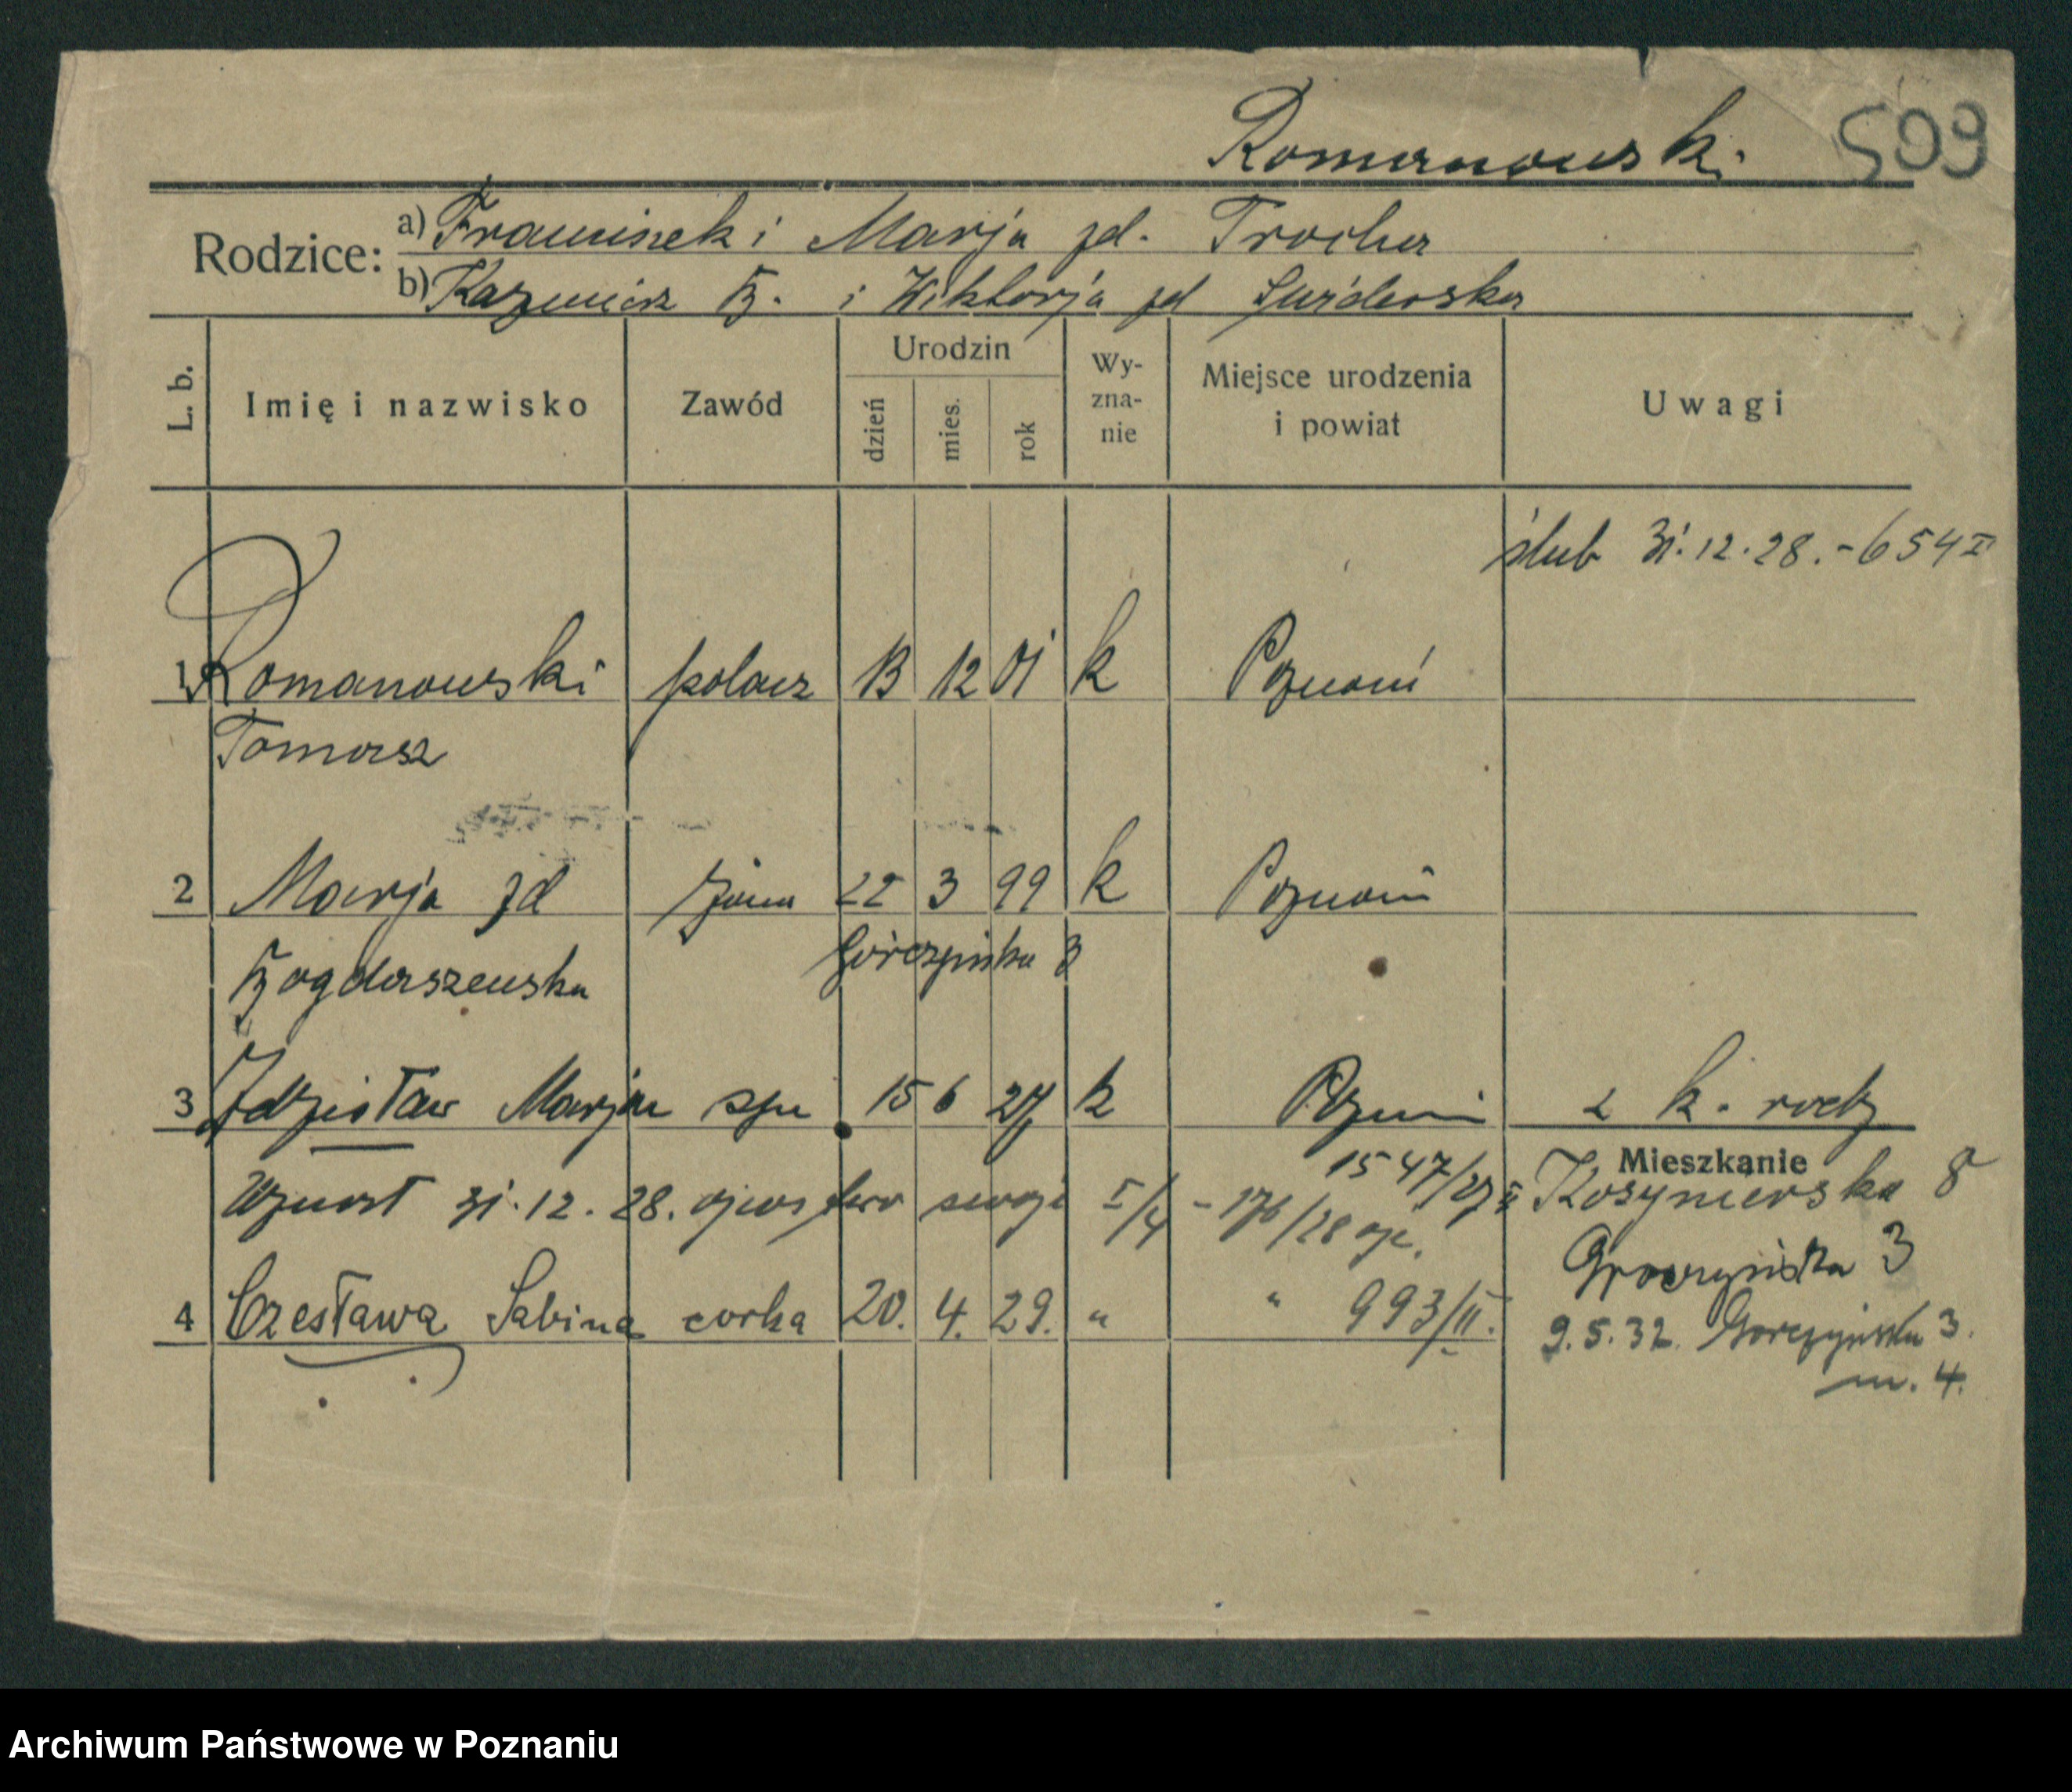 Romanowski 509
Rodzice: a) Franciszek i Marja zd. Trocha
b) Kazimierz B. i Wiktorja zd Świderska
L. b. Imię i nazwisko Zawód Urodzin dzień mies. rok Wy- zna- nie Miejsce urodzenia i powiat Uwagi
ślub 31.12.28. - 654 II
1 Romanowski kołacz 13 12 01 k Poznań
Tomasz
2 Marja zd żona 22 3 99 k Poznań
Bogdaszewska Górczyńska 3
3 Zdzisław Marjan syn 15 6 27 k Poznań z k. rodz
1547/27 II Mieszkanie
Uznał 31.12.28. ojcostwo I/4 - 176/28 Kosynierska 8
Groczyńska 3
4 Czesława Sabina corka 20. 4. 29. " " 993/II.
9.5.32. Gorczyńska 3.
m. 4.
Archiwum Państwowe w Poznaniu